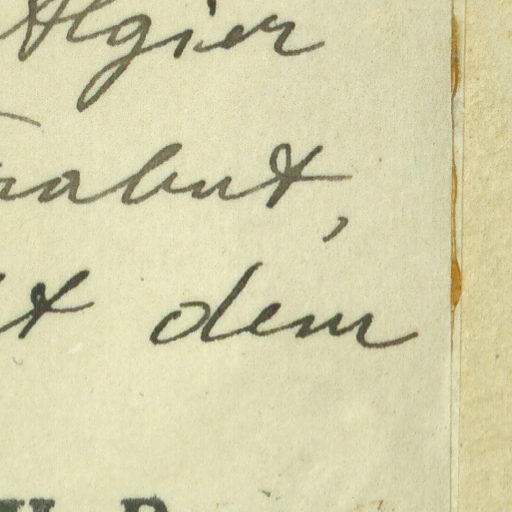 Algier
rabut,
t dem